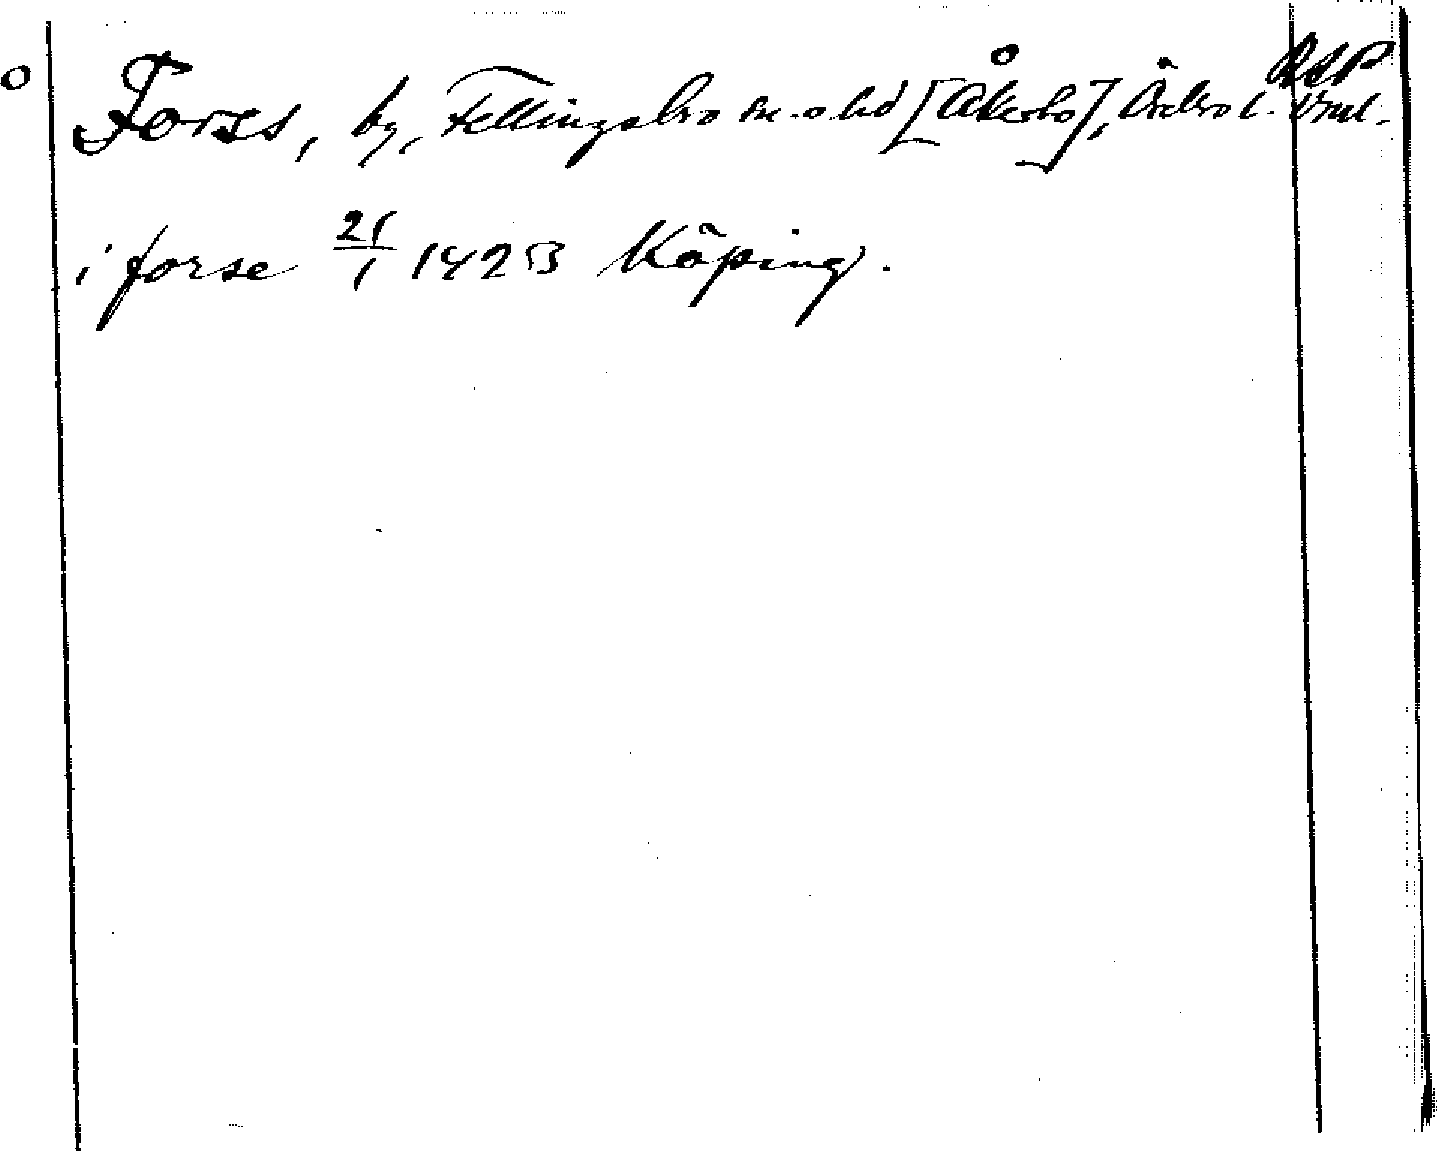 RSP
o Forss, by, Fellingsbro sn. o hd [Åkerbo], Örebro l. Vml.
i forse 21/1 1423 Köping.